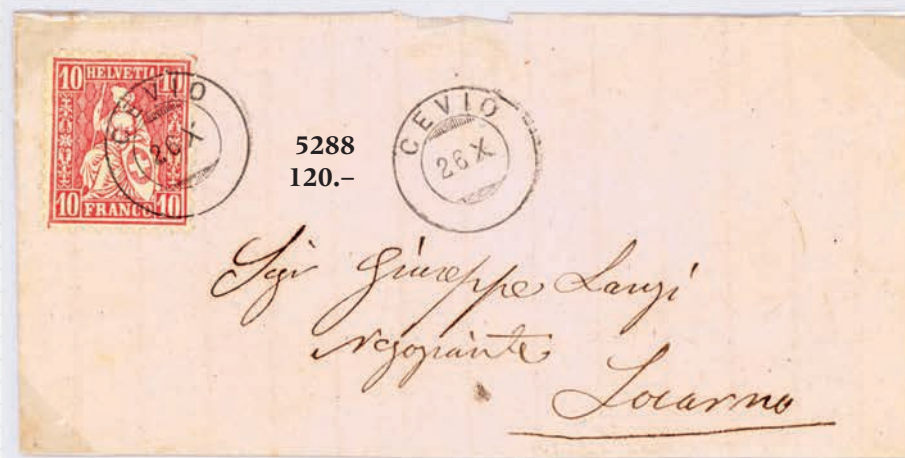 10 HELVETIA 10
10 FRANCO 10
CEVIO
26 X
5288
120.–
CEVIO
26 X
Sigr Giuseppe Lanzi
Negoziante
Locarno